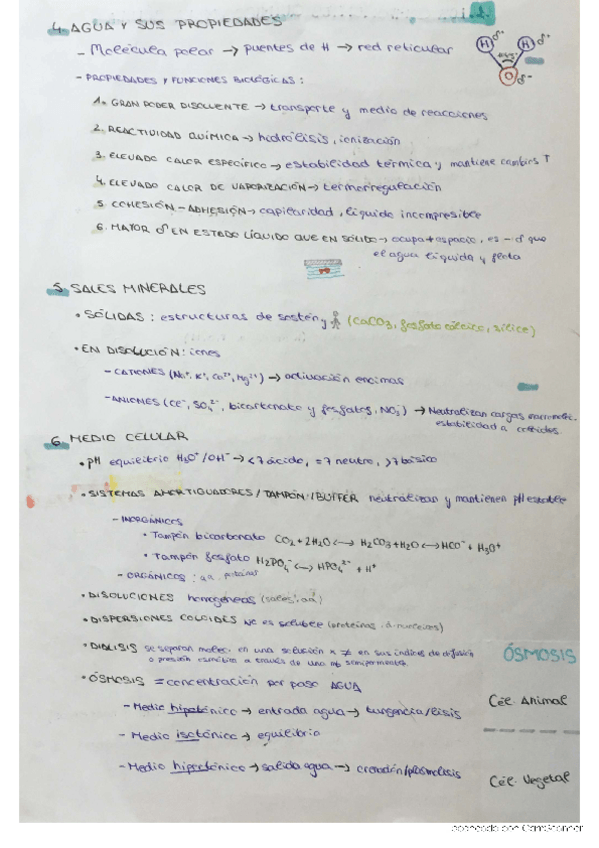 4. AGUA Y SUS PROPIEDADES
- Molécula polar → puentes de H → red reticular
H δ+ H δ+
O δ-
- PROPIEDADES Y FUNCIONES BIOLÓGICAS:
1. GRAN PODER DISOLVENTE → transporte y medio de reacciones
2. REACTIVIDAD QUÍMICA → hidrólisis, ionización
3. ELEVADO CALOR ESPECÍFICO → estabilidad térmica y mantiene cambios T
4. ELEVADO CALOR DE VAPORIZACIÓN → termorregulación
5. COHESIÓN - ADHESIÓN → capilaridad, líquido incompresible
6. MAYOR d EN ESTADO LÍQUIDO QUE EN SÓLIDO → ocupa + espacio, es - d que
el agua líquida y flota
5. SALES MINERALES
• SÓLIDAS: estructuras de sostén y (CaCO3, fosfato cálcico, sílice)
• EN DISOLUCIÓN: iones
- CATIONES (Na+, K+, Ca2+, Mg2+) → activación enzimas
- ANIONES (Cl-, SO4 2-, bicarbonato y fosfatos, NO3-) → Neutralizan cargas
estabilidad a coloides
6. MEDIO CELULAR
• pH equilibrio H3O+/OH- → <7 ácido, =7 neutro, >7 básico
• SISTEMAS AMORTIGUADORES/TAMPÓN/BUFFER neutralizan y mantienen pH estable
- INORGÁNICOS
• Tampón bicarbonato CO2 + 2H2O ↔ H2CO3 + H2O ↔ HCO- + H3O+
• Tampón fosfato H2PO4- ↔ HPO4 2- + H+
- ORGÁNICOS: aa proteínas
• DISOLUCIONES homogéneas (sales, aa)
• DISPERSIONES COLOIDES no es soluble (proteínas
• DIÁLISIS se separan molec. en una solución x ≠ en sus índices de difusión
o presión osmótica a través de una mb semipermeable
• ÓSMOSIS = concentración por paso AGUA
- Medio hipotónico → entrada agua → turgencia/lisis
- Medio isotónico → equilibrio
- Medio hipertónico → salida agua → crenación/plasmolisis
ÓSMOSIS
Cél. Animal
Cél. Vegetal
Escaneado con CamScanner